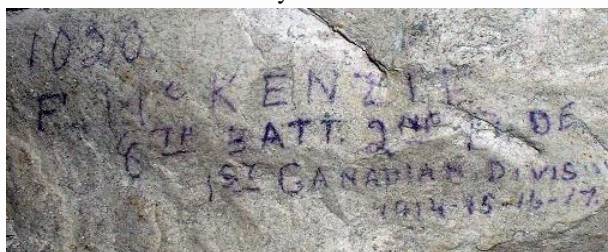 1020
F McKENZIE
6TH BATT. 2ND B DE
1ST CANADIAN DIVIS
1914-15-16-17